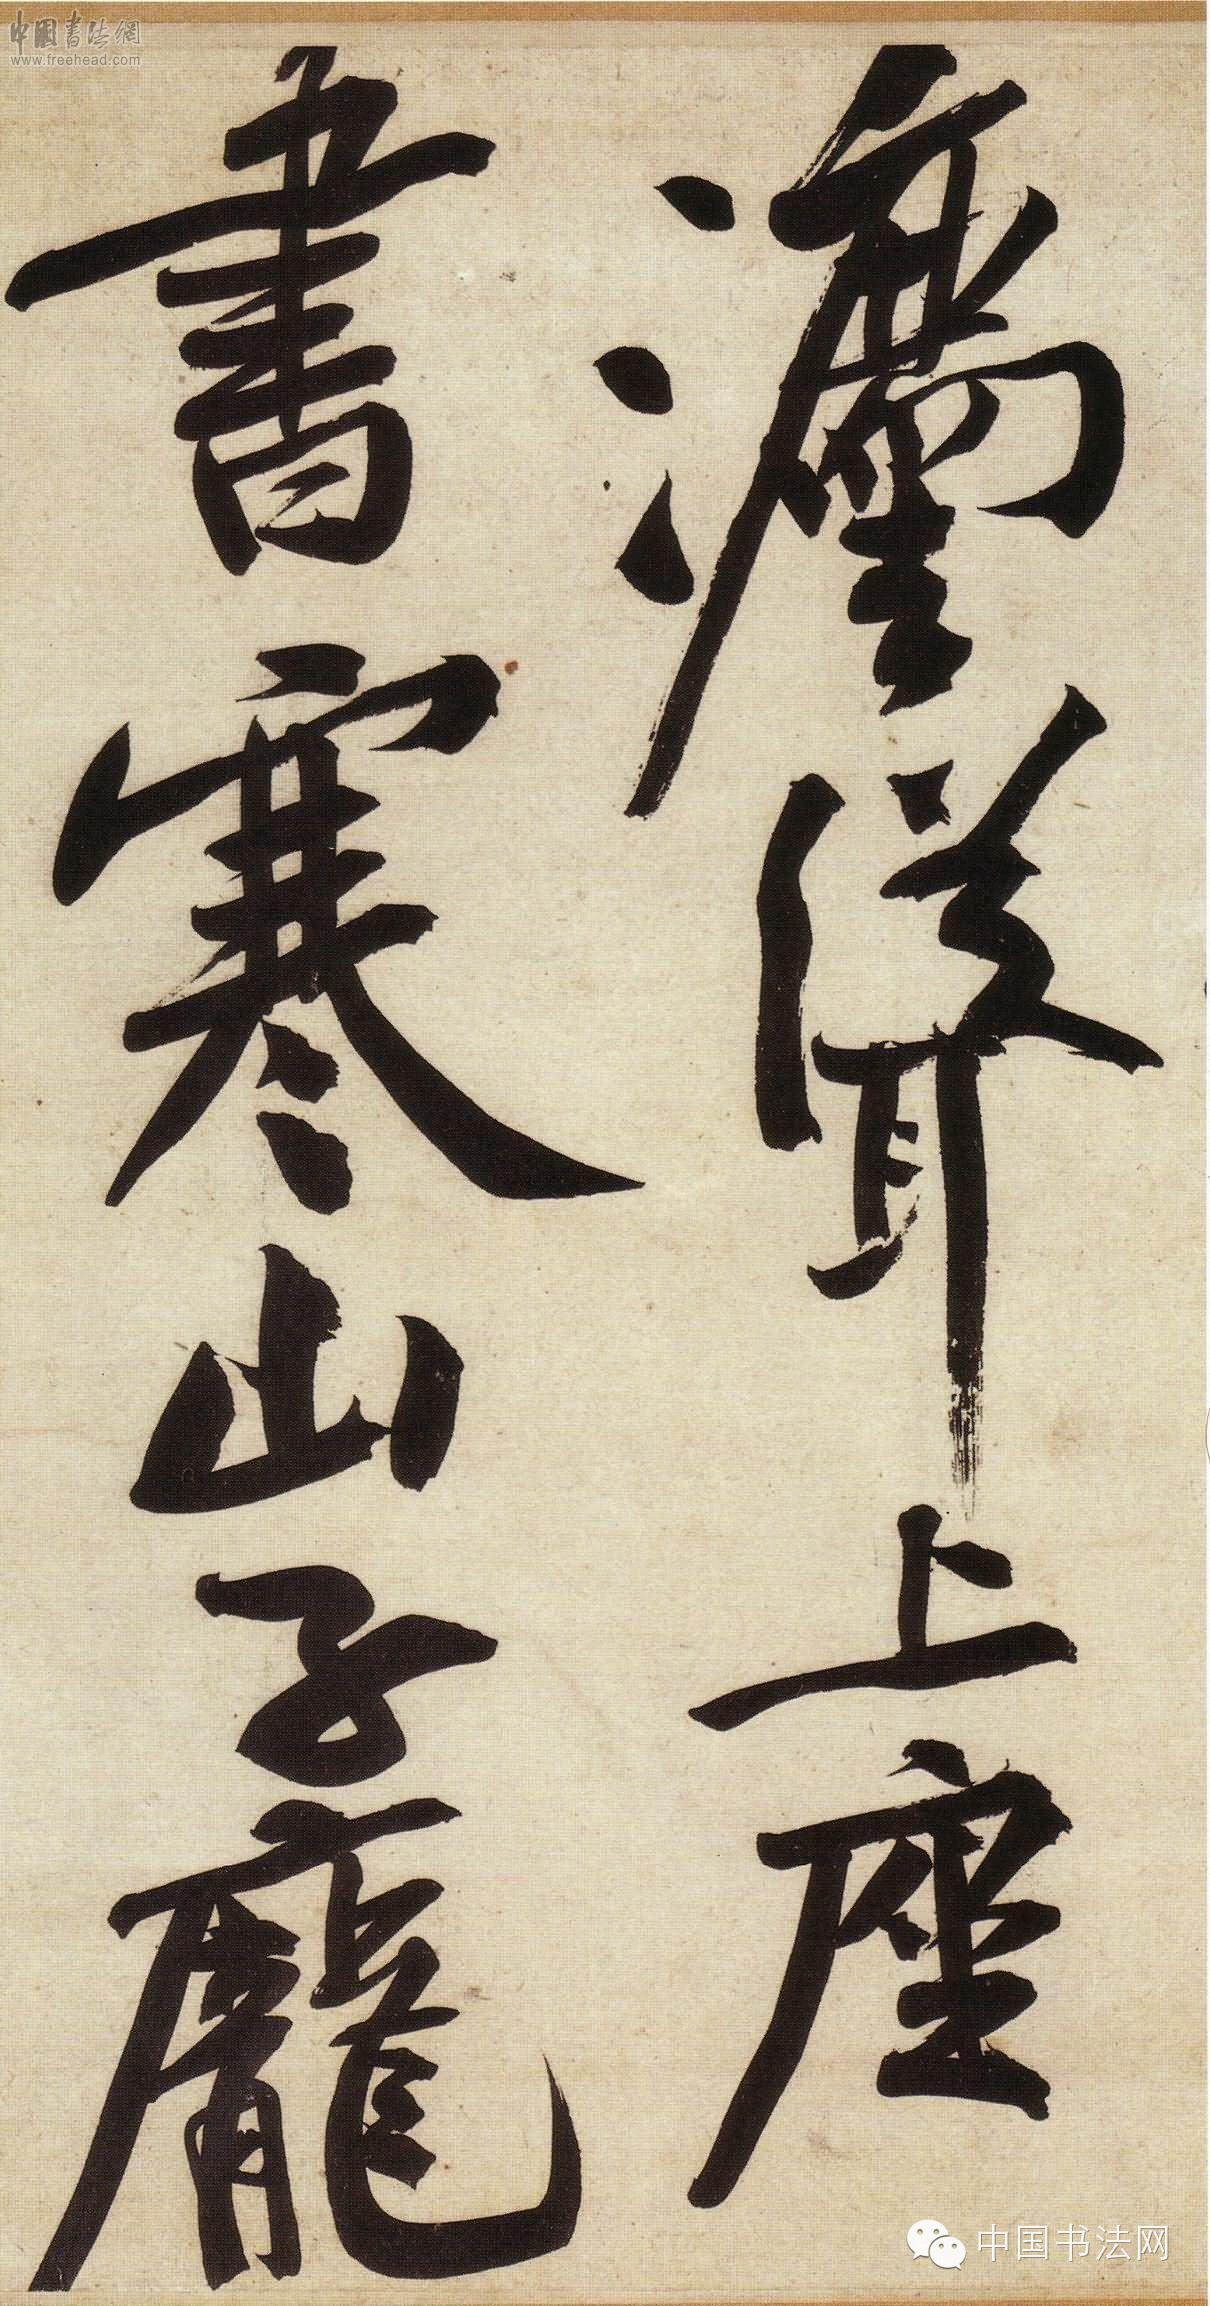 灋聳上座
書寒山子龐
中國書法網
www.freehead.com
中国书法网